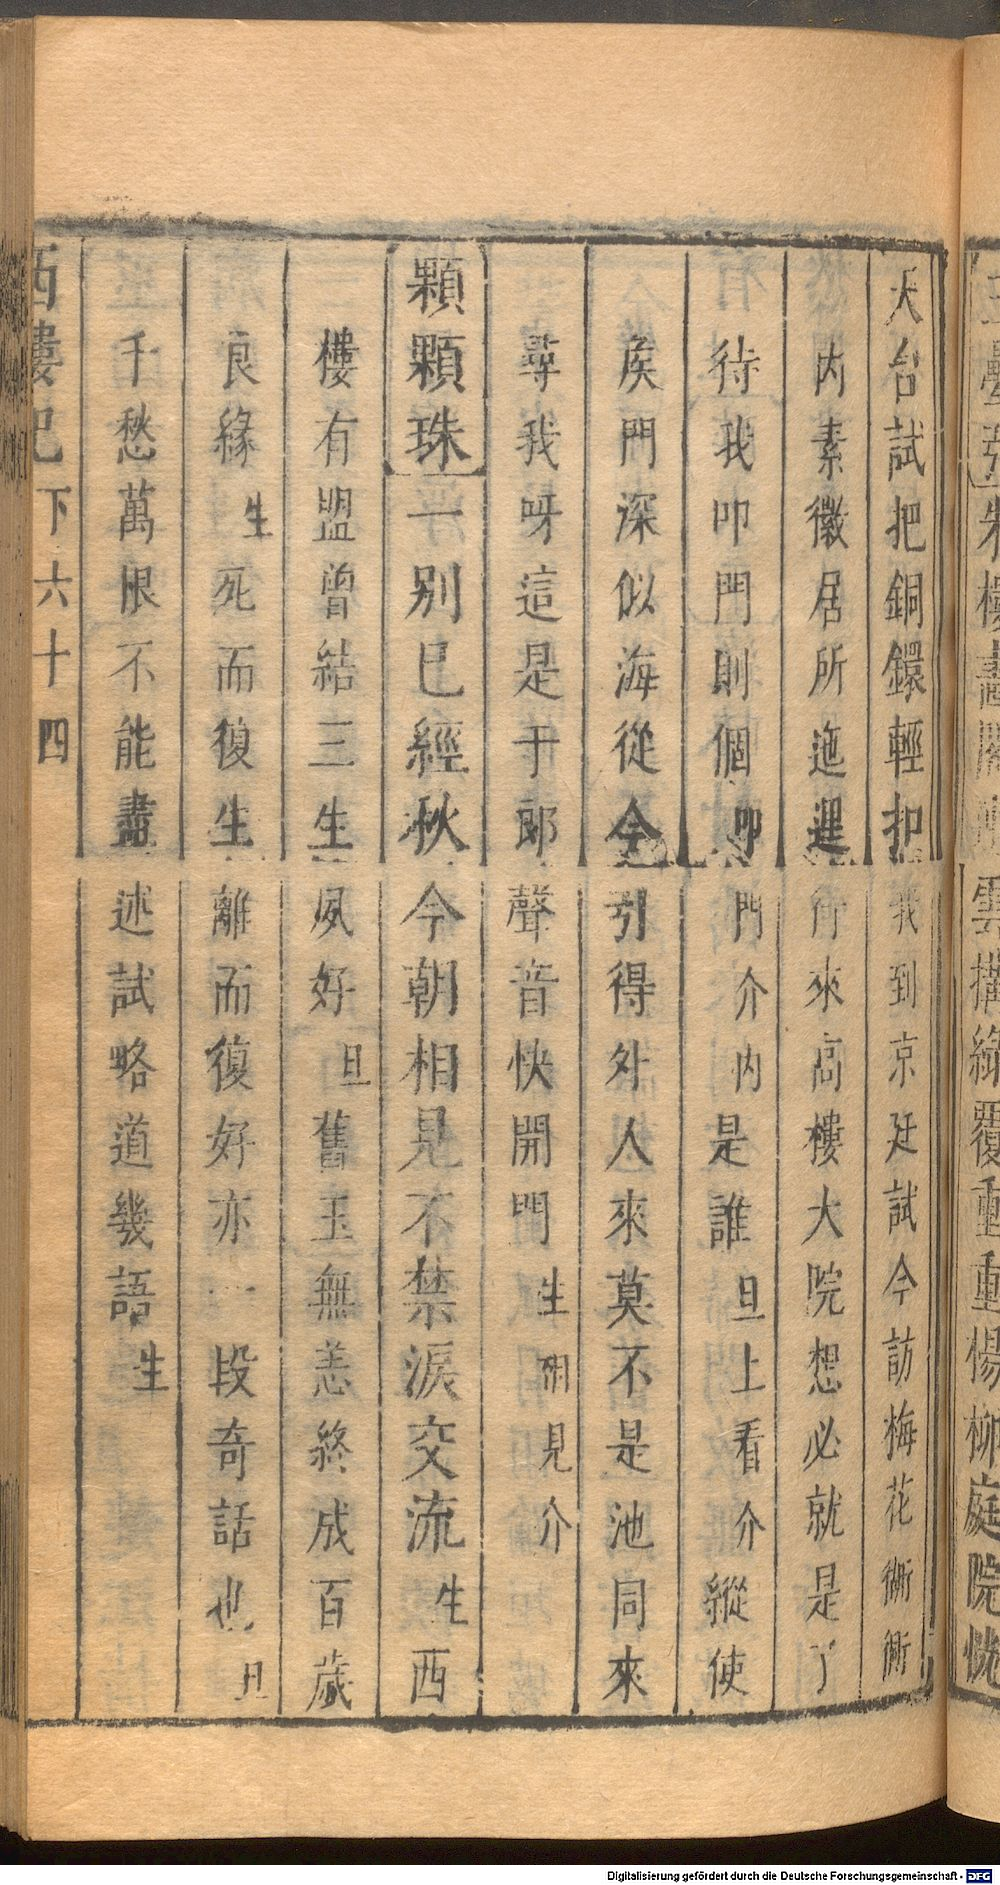 天台試把銅鐶輕扣我到京廷試今訪梅花衚衕
内素徽居所迤𨓦行來高樓大院想必就是了
待我叩門則個叩門介内是誰旦上看介縱使
矦門深似海從今引得外人來莫不是池同來
尋我呀這是于郎聲音快開門生相見介
顆顆珠一别已經秋今朝相見不禁淚交流生西
樓有盟曾結三生夙好旦舊玉無恙終成百歳
良緣生死而復生離而復好亦一段奇話也旦
千愁萬恨不能盡述試略道幾語生
西樓記 下 六十四
Digitalisierung gefördert durch die Deutsche Forschungsgemeinschaft - DFG